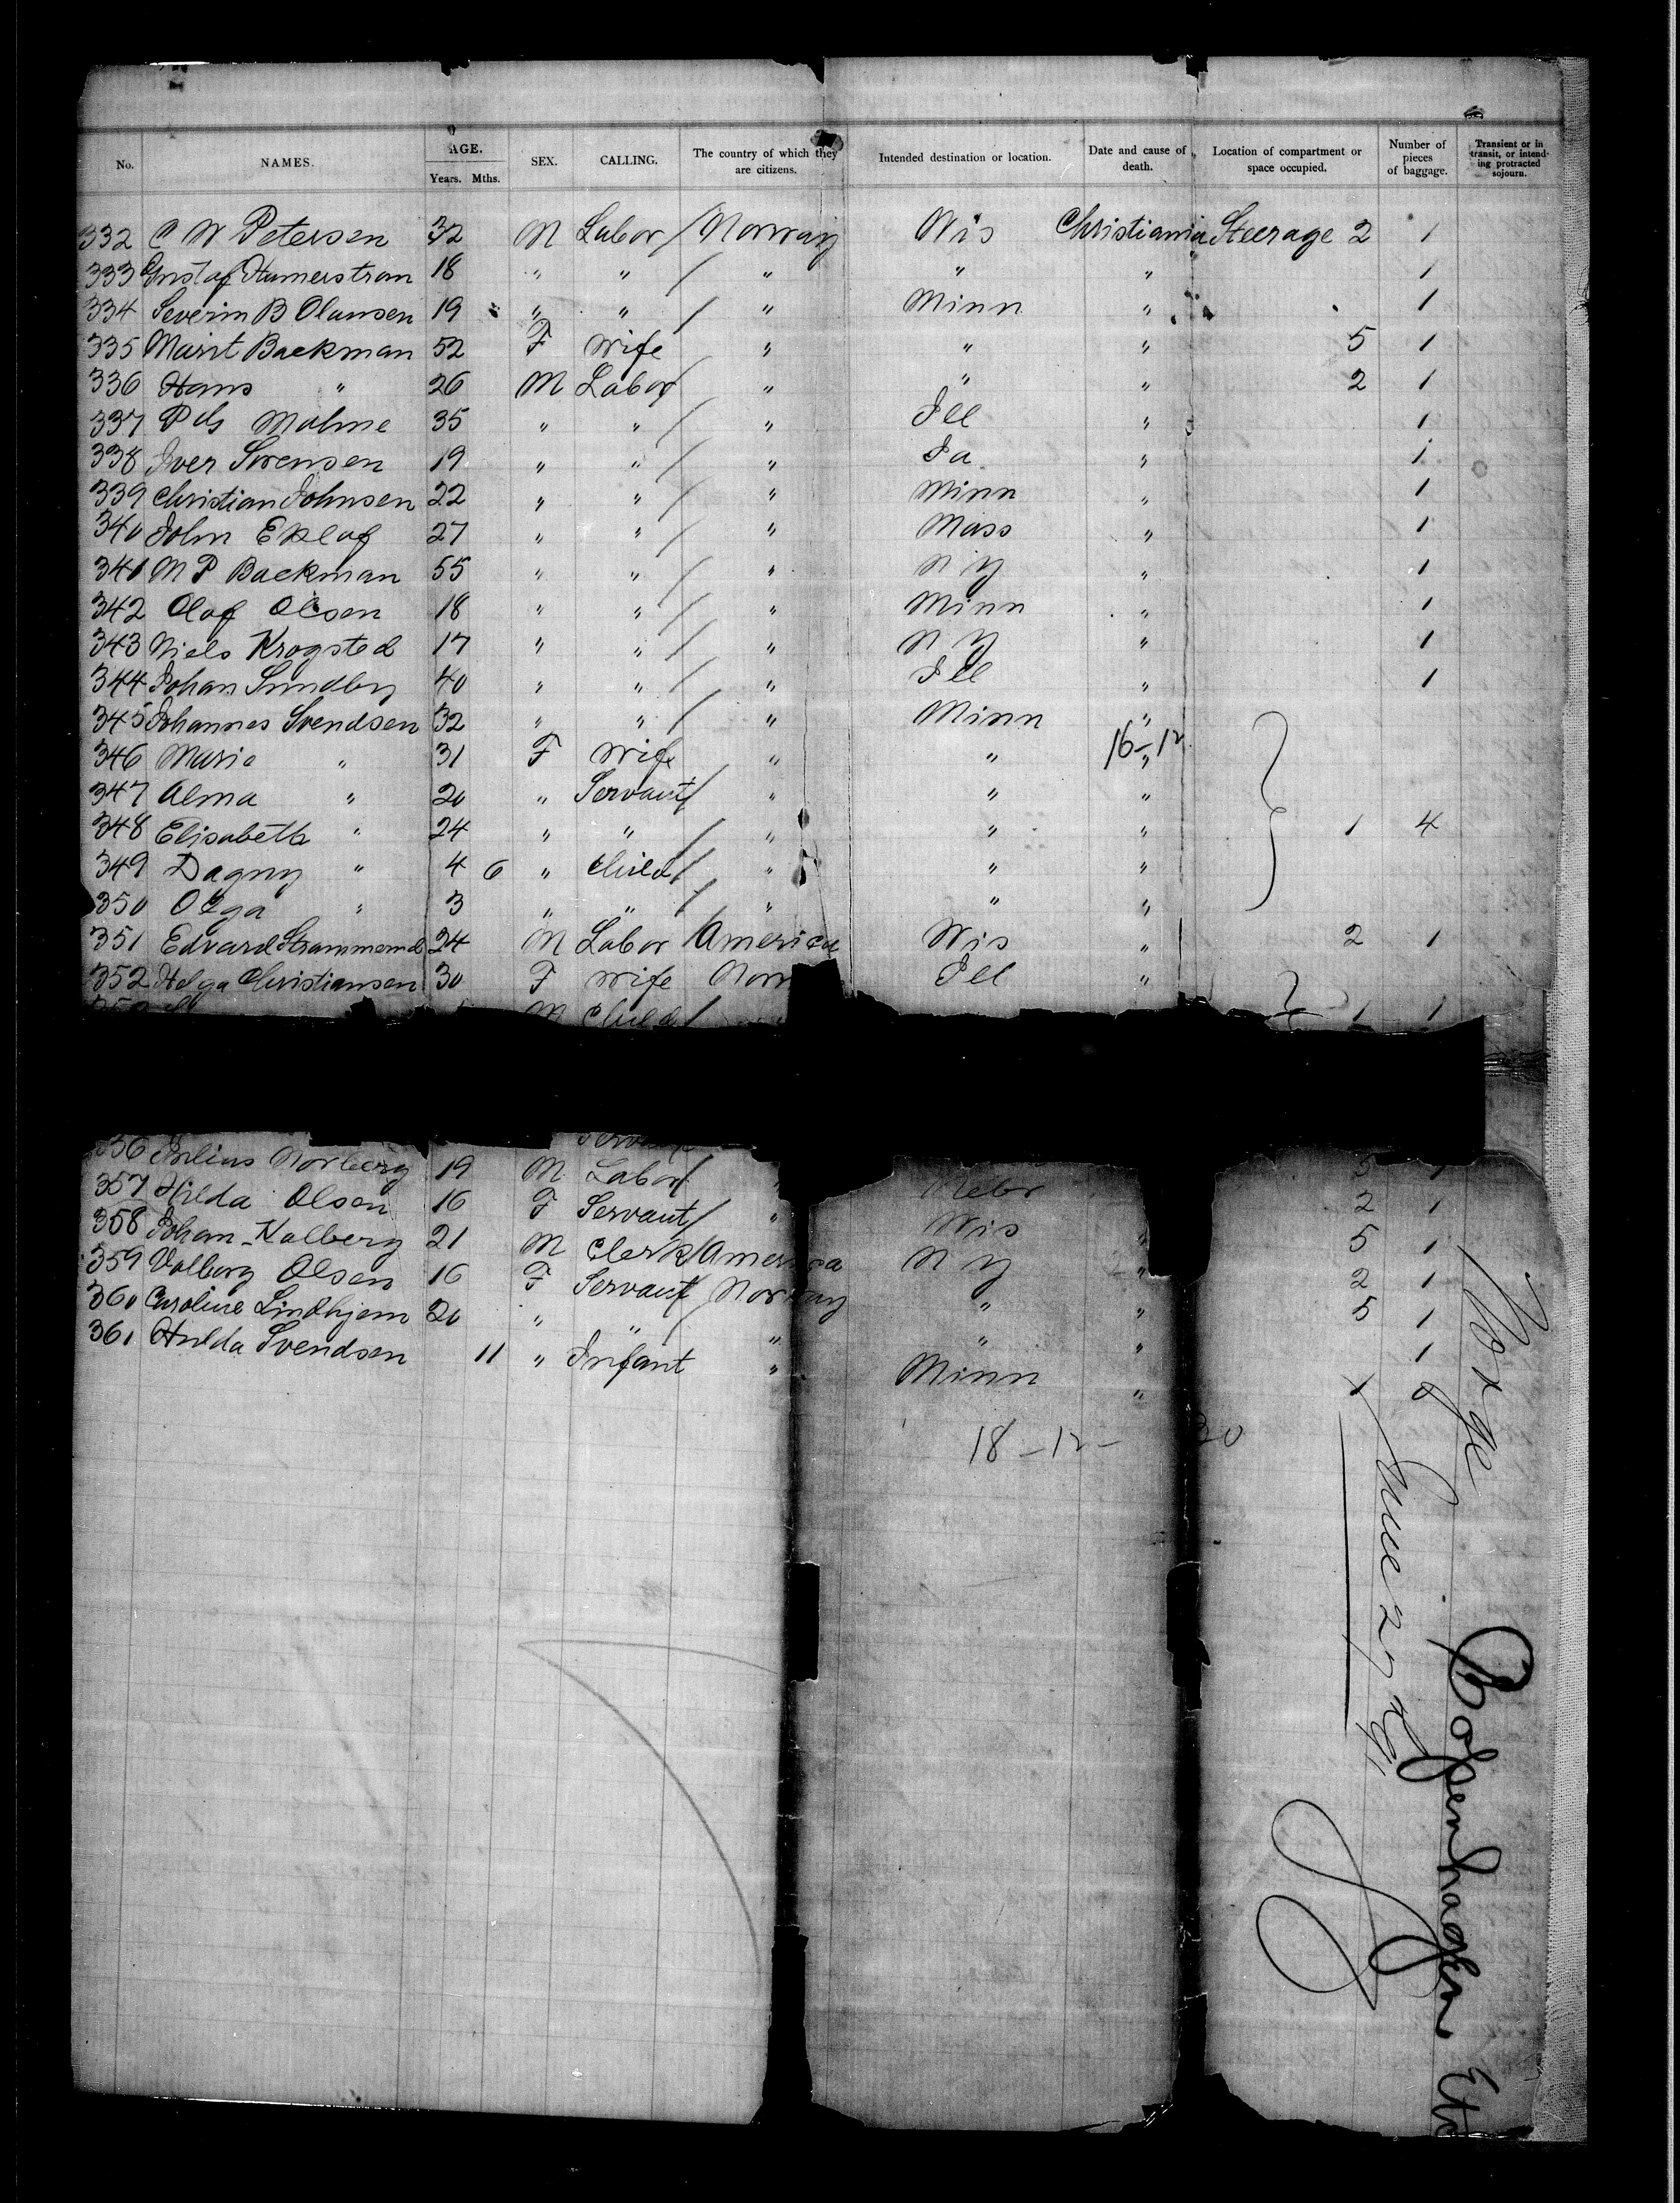 No. NAMES. AGE. Years. Mths. SEX. CALLING. The country of which they are citizens. Intended destination or location. Date and cause of death. Location of compartment or space occupied. Number of pieces of baggage. Transient or in transit, or intending protracted sojourn.
332 C W Petersen 32 M Labor / Norway Wis Christiania Steerage 2 1
333 Gustaf Hamerstran 18 " " / " " " 1
334 Severin B Olansen 19 " " / " Minn " 1
335 Marit Backman 52 F Wife " " " 5 1
336 Hans " 26 M Labor / " " " 2 1
337 Malme 35 " " / " Ill " 1
338 Iver Sorensen 19 " " / " Ia " 1
339 Christian Johnsen 22 " " / " Minn " 1
340 John Eklof 27 " " / " Mass " 1
341 M P Backman 55 " " / " N Y " 1
342 Olof Olsen 18 " " / " Minn " 1
343 Niels Krogsted 17 " " / " N Y " 1
344 Johan Sundby 40 " " / " Ill " 1
345 Johannes Svendsen 32 " " / " Minn "
346 Marie " 31 F Wife " " 16-12 "
347 Alma " 20 " Servant / " " "
348 Elisabeth " 24 " " / " " " 1 4
349 Dagny " 4 6 " Child / " " "
350 Olga " 3 " " / " " "
351 Edvard 24 M Labor / America Wis " 2 1
352 Helga Christiansen 30 F Wife Norw Ill "
M Child / 1 1
Servant
356 Julius Norberg 19 M Labor / 5 1
357 Hilda Olsen 16 F Servant / " Nebr 2 1
358 Johan Kalberg 21 M Clerk / America Wis " 5 1
359 Valborg Olsen 16 F Servant / Norway N Y " 2 1
360 Caroline Lindhjem 20 " " / " " " 5 1
361 Hulda Svendsen 11 " Infant " " " 1
Minn " 1 0
18-12- 20
Norge
Copenhagen Etc